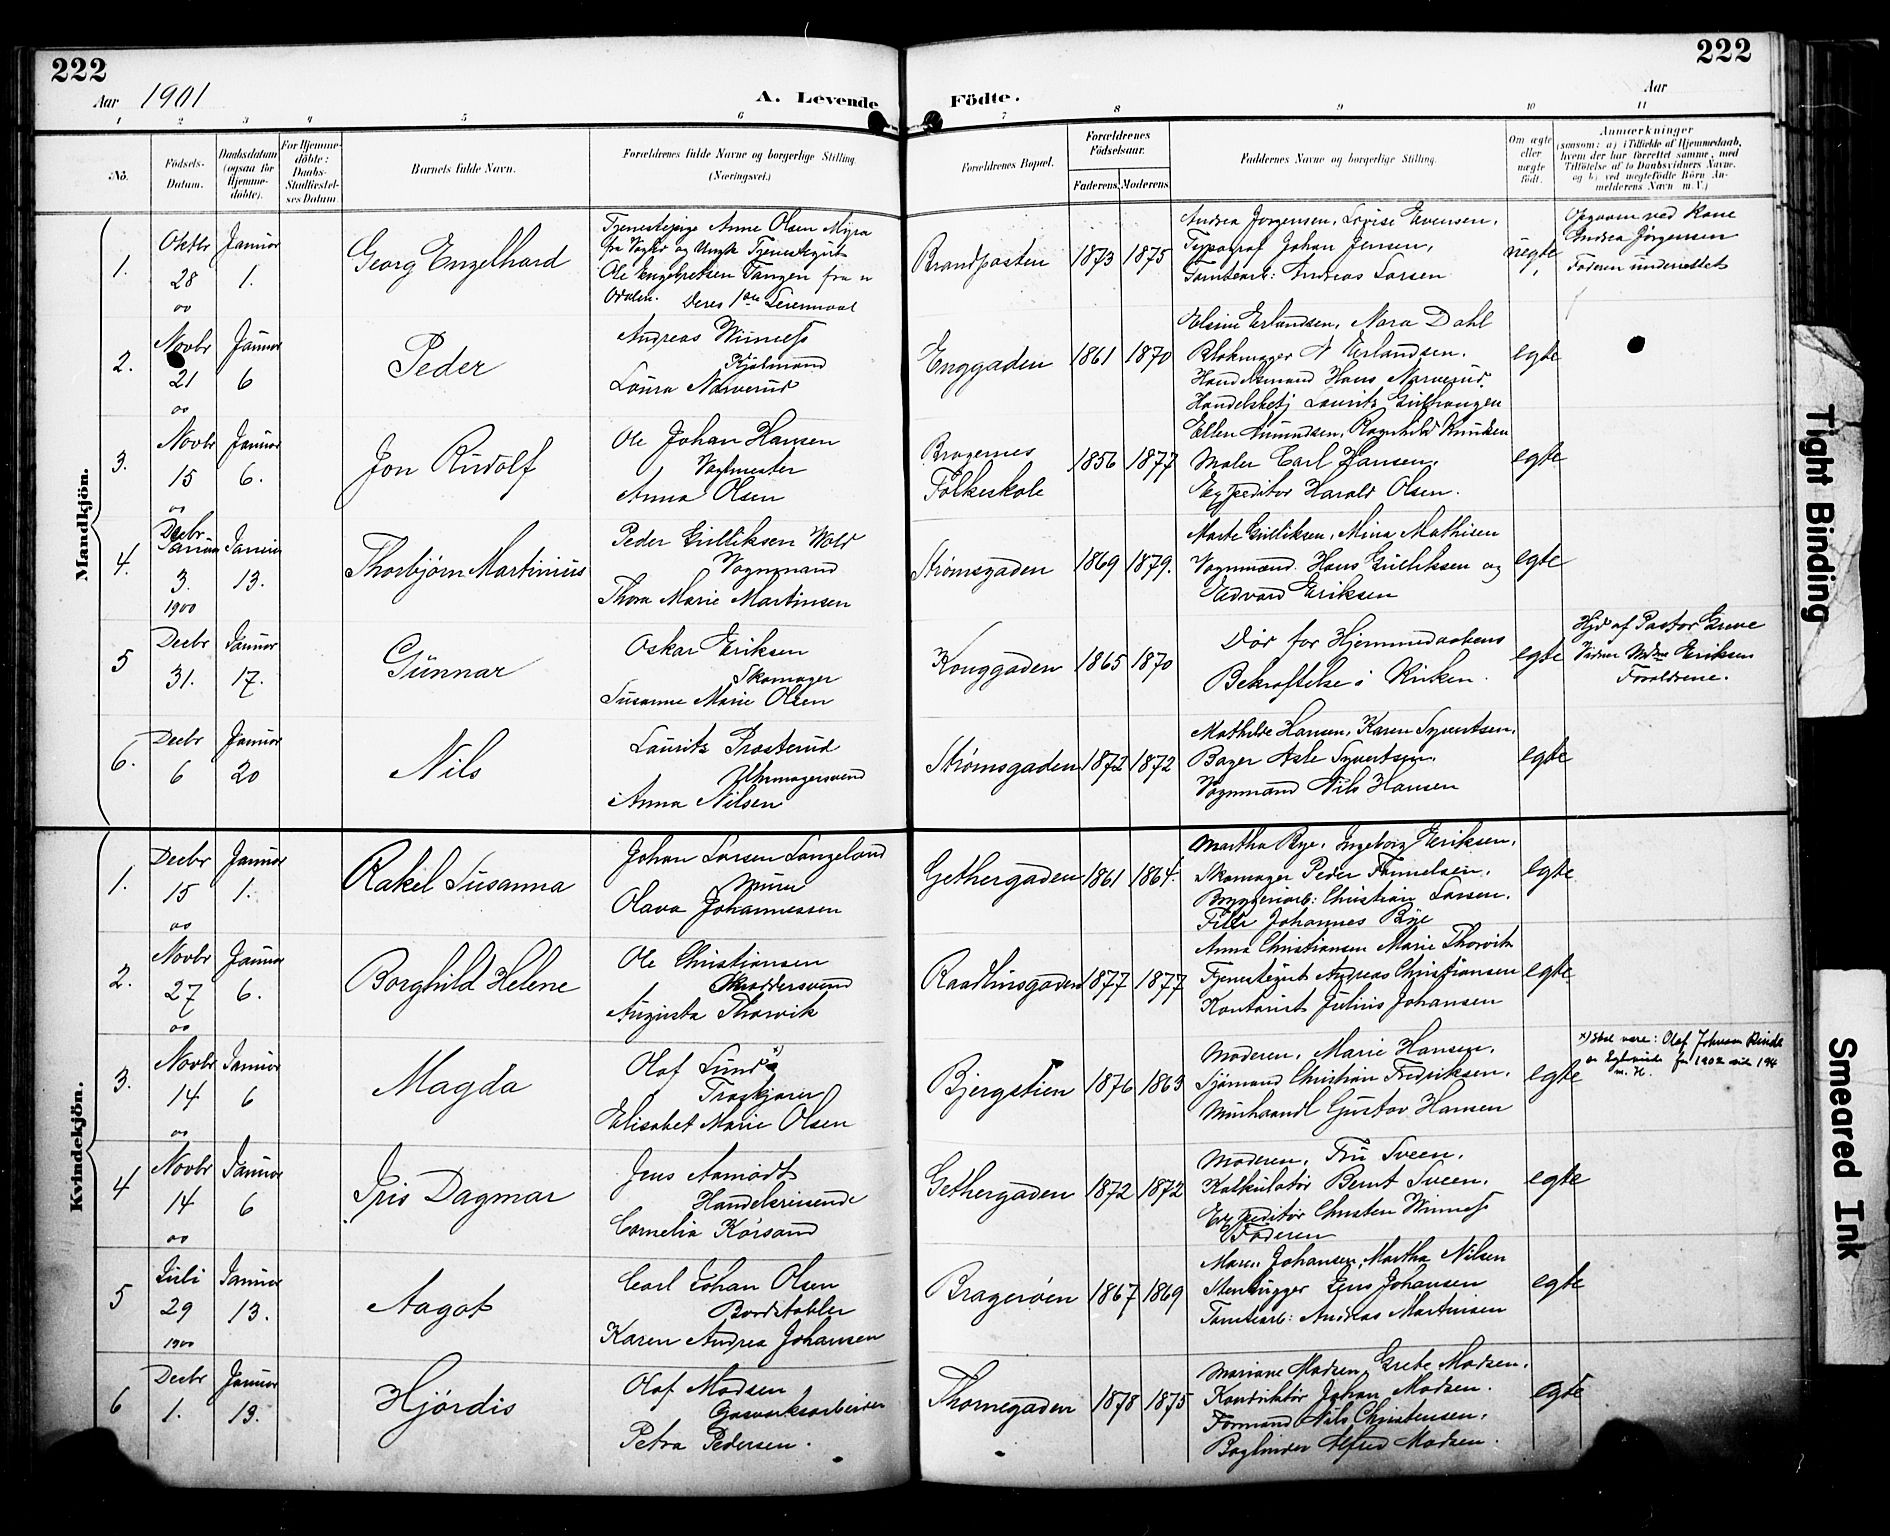 222
222
Aar 1901
A. Levende
Födte.
Aar
1 2 3 4 5 6 7 8 9 10 11
No.
Födsels-Datum.
Daabsdatum (ogsaa for Hjemme-döbte).
For Hjemme-döbte: Daabs-Stadfæstel-ses Datum.
Barnets fulde Navn.
Forældrenes fulde Navne og borgerlige Stilling. (Næringsvei.)
Forældrenes Bopæl.
Forældrenes Födselsaar.
Faderens. Moderens.
Faddernes Navne og borgerlige Stilling.
Om ægte eller uægte födt.
Anmærkninger
(saasom: a) i Tilfælde af Hjemmedaab, hvem der har forrettet samme, med Tilföielse af to Daabsvidners Navne, og b) ved uegtefödte Börn An-melderens Navn m. V.)
Mandkjön.
1.
Oktbr 28 00
Januar 1.
Georg Engelhard
Tjenestepige Anne Olsen Myra
fra Vager og Ungk Tjenestegut
Ole Engebretsen Tangen fra n
Odalen. Deres 1ste Leiermaal
Brandposten
1873 1875
Andrea Jørgensen, Lovise Evensen,
Typograf Johan Jensen,
Tomtearb: Andreas Larsen
uegte
Opgaven ved Kone
Andrea Jørgensen
Faderen underrettet
2.
Novbr 21 00
Januar 6
Peder
Andreas Winness
Kjølmand
Laura Narverud
Enggaden
1861 1870
Elsine Erlandsen, Nora Dahl
Blokmager A Erlandsen.
Handelsmand Hans Narverud.
Handelsbetj Laurits Gulhaugen
egte
3.
Novbr 15 00
Januar 6.
Jon Rudolf
Ole Johan Hansen
Vagtmester
Anna Olsen
Bragernes
Folkeskole
1856 1877
Ellen Amundsen, Ragnhild Knudsen
Maler Carl Hansen.
Expeditør Harald Olsen.
egte
4.
Decbr
Januar 3. 1900
Januar 13.
Thorbjørn Martinius
Peder Gulliksen Wold
Vognmand
Thora Marie Martinsen
Strømsgaden
1869 1879.
Marte Gulliksen, Mina Mathisen
Vognmand. Hans Gulliksen og
Edvard Eriksen
egte
5
Decbr 31.
Januar 17.
Gunnar
Oskar Eriksen
Skomager
Susanne Marie Olsen
Konggaden
1865 1870
Død før Hjemmedaabens
Bekræftelse i Kirken.
egte
Hjd af Pastor Greve
Vidner Mdme Eriksen
Forældrene.
6.
Decbr 6
Januar 20
Nils
Laurits Prosterud
Uhrmagersvend
Anna Nilsen
Strømsgaden
1872 1872
Mathilde Hansen, Karen Syvertsen,
Bager Asle Syvertsen.
Vognmand Nils Hansen
egte
Kvindekjön.
1.
Decbr 15 00
Januar 1.
Rakel Susanna
Johan Larsen Langeland
Murer
Olava Johannessen
Gethergaden
1861 1864.
Martha Rye, Ingeborg Eriksen,
Skomager Peder
Bryggeriarb: Christian Larsen.
Johannes Rye
egte
2.
Novbr 27 00
Januar 6.
Borghild Helene
Ole Christiansen
Skræddersvend
Augusta Thorvik
Raadhusgaden
1877 1877
Anna Christiansen Marie Thorvik
Tjenestegut Andreas Christiansen
Kontorist Julius Johansen
egte
3.
Novbr 14 00
Januar 6
Magda
Olaf Lund x)
Elisabet Marie Olsen
Bjergstien
1876 1863
Moderen, Marie Hansen,
Sjømand Christian Fredriksen,
Gustav Hansen
egte
x) skal være: Olaf Johnsen Rinde
4
Novbr 14 00
Januar 6
Iris Dagmar
Jens Aamodt
Handelsreisende
Cornelia Korsand
Gethergaden
1872 1872
Moderen, Fru Sveen,
Kalkulatør Bernt Sveen,
Expeditør Christen Winness
Faderen
egte
5
Juli 29 1900
Januar 13.
Aagot
Carl Johan Olsen
Bordstabler
Karen Andrea Johansen
Bragerøen
1867 1869
Maren Johansen, Martha Nilsen
Stenhugger Lars Johansen
Tomtearb: Andreas Martinsen
egte
6
Decbr 1.
Januar 13.
Hjørdis
Olaf Madsen
Gasværksarbeider
Petra Pedersen.
Thornegaden
1878 1875
Mariane Madsen, Grete Madsen.
Konduktør Johan Madsen.
Formand Nils Christensen,
Bogbinder Alfred Madsen.
egte
Tight Binding
Smeared Ink